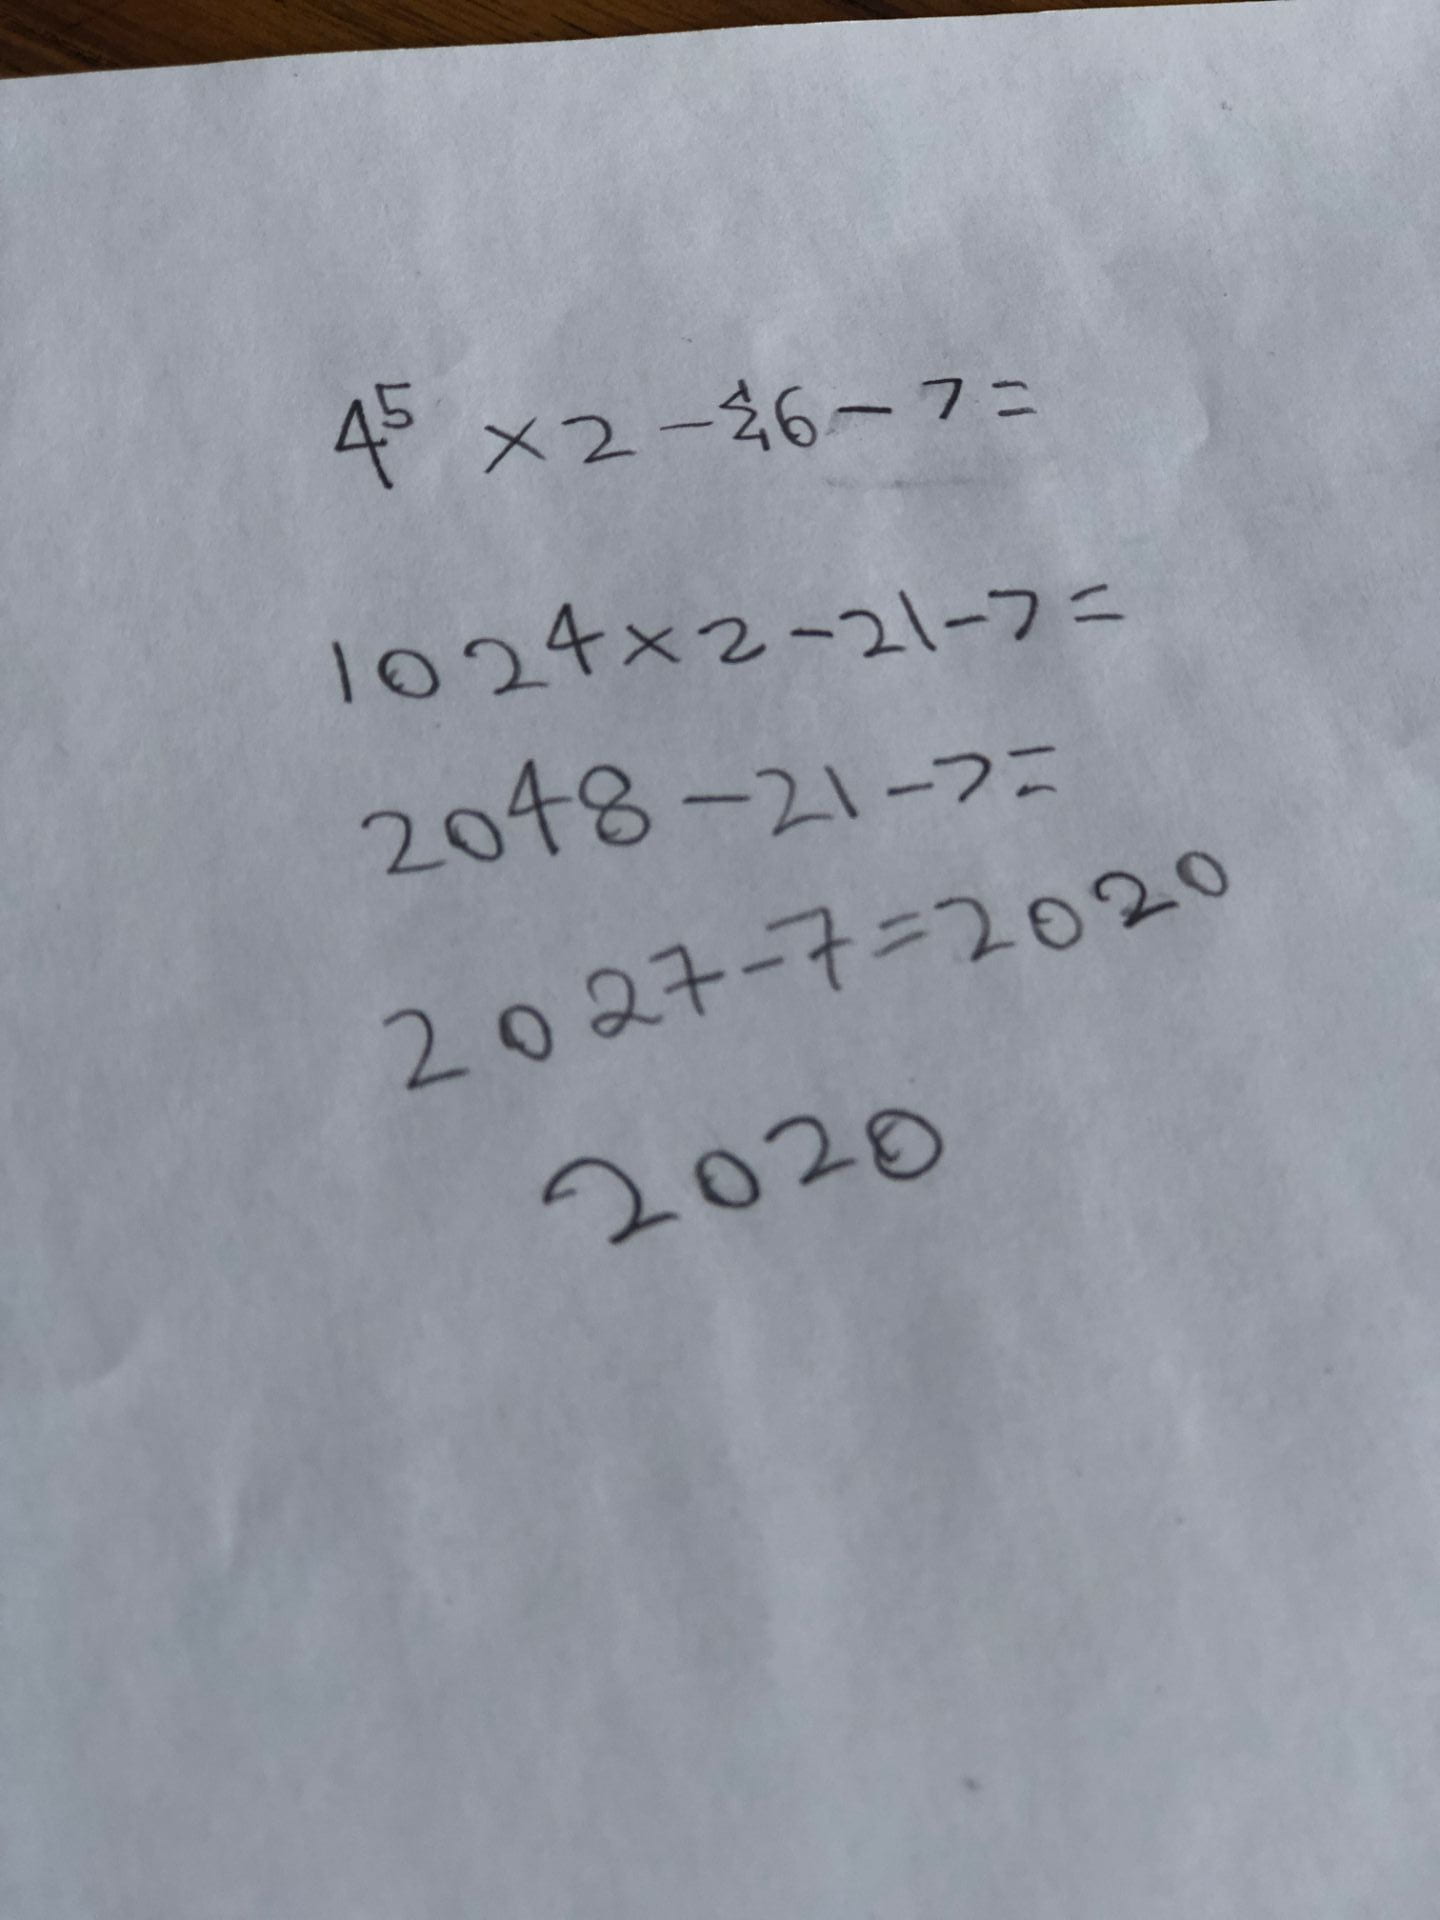 4⁵ × 2 - Σ6 - 7 =
1024 × 2 - 21 - 7 =
2048 - 21 - 7 =
2027 - 7 = 2020
2020